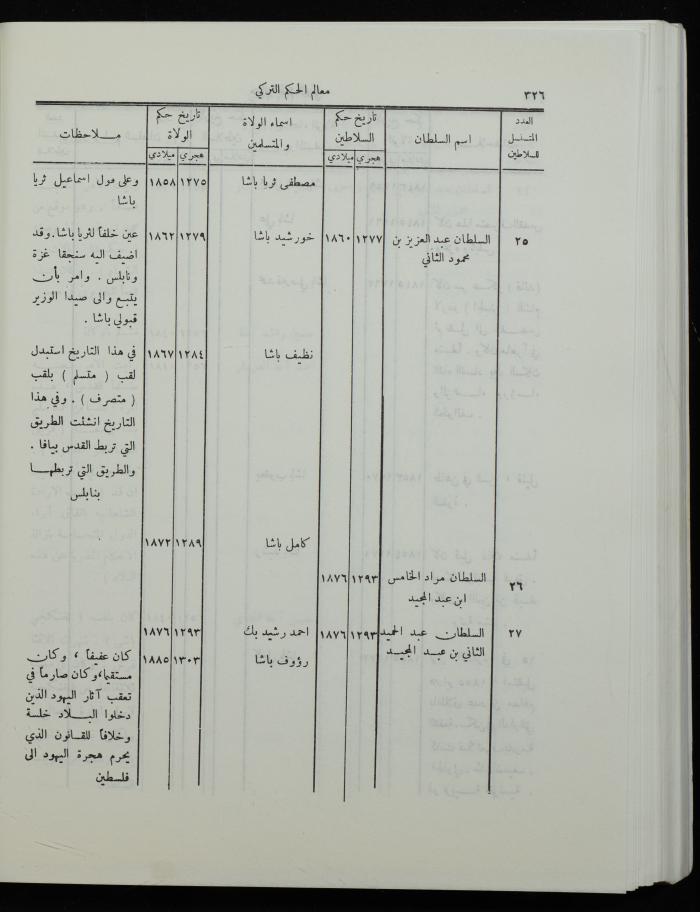 ٣٢٦
معالم الحكم التركي
العدد المتسلسل للسلاطين
اسم السلطان
تاريخ حكم السلاطين
هجري ميلادي
اسماء الولاة والمتسلمين
تاريخ حكم الولاة
هجري ميلادي
مـــلاحظات
مصطفى ثريا باشا ١٢٧٥ ١٨٥٨ وعلى قول اسماعيل ثريا
باشا
٢٥ السلطان عبد العزيز بن ١٢٧٧ ١٨٦٠ خورشيد باشا ١٢٧٩ ١٨٦٢ عين خلفاً لثريا باشا. وقد
محمود الثاني اضيف اليه سنجقا غزة
ونابلس . وامر بأن
يتبع والى صيدا الوزير
قبولي باشا .
نظيف باشا ١٢٨٤ ١٨٦٧ في هذا التاريخ استبدل
لقب ( متسلم ) بلقب
( متصرف ) . وفي هذا
التاريخ انشئت الطريق
التي تربط القدس بيافا .
والطريق التي تربطهــا
بنابلس
كامل باشا ١٢٨٩ ١٨٧٢
٢٦ السلطان مراد الخامس ١٢٩٣ ١٨٧٦
ابن عبد المجيد
٢٧ السلطان عبد الحميد ١٢٩٣ ١٨٧٦ احمد رشيد بك ١٢٩٣ ١٨٧٦
الثاني بن عبــد المجيــد
رؤوف باشا ١٣٠٣ ١٨٨٥ كان عفيفاً ، وكان
مستقيما، وكان صارماً في
تعقب آثار اليهود الذين
دخلوا البــلاد خلسة
وخلافاً للقــانون الذي
يحرم هجرة اليهود الى
فلسطين